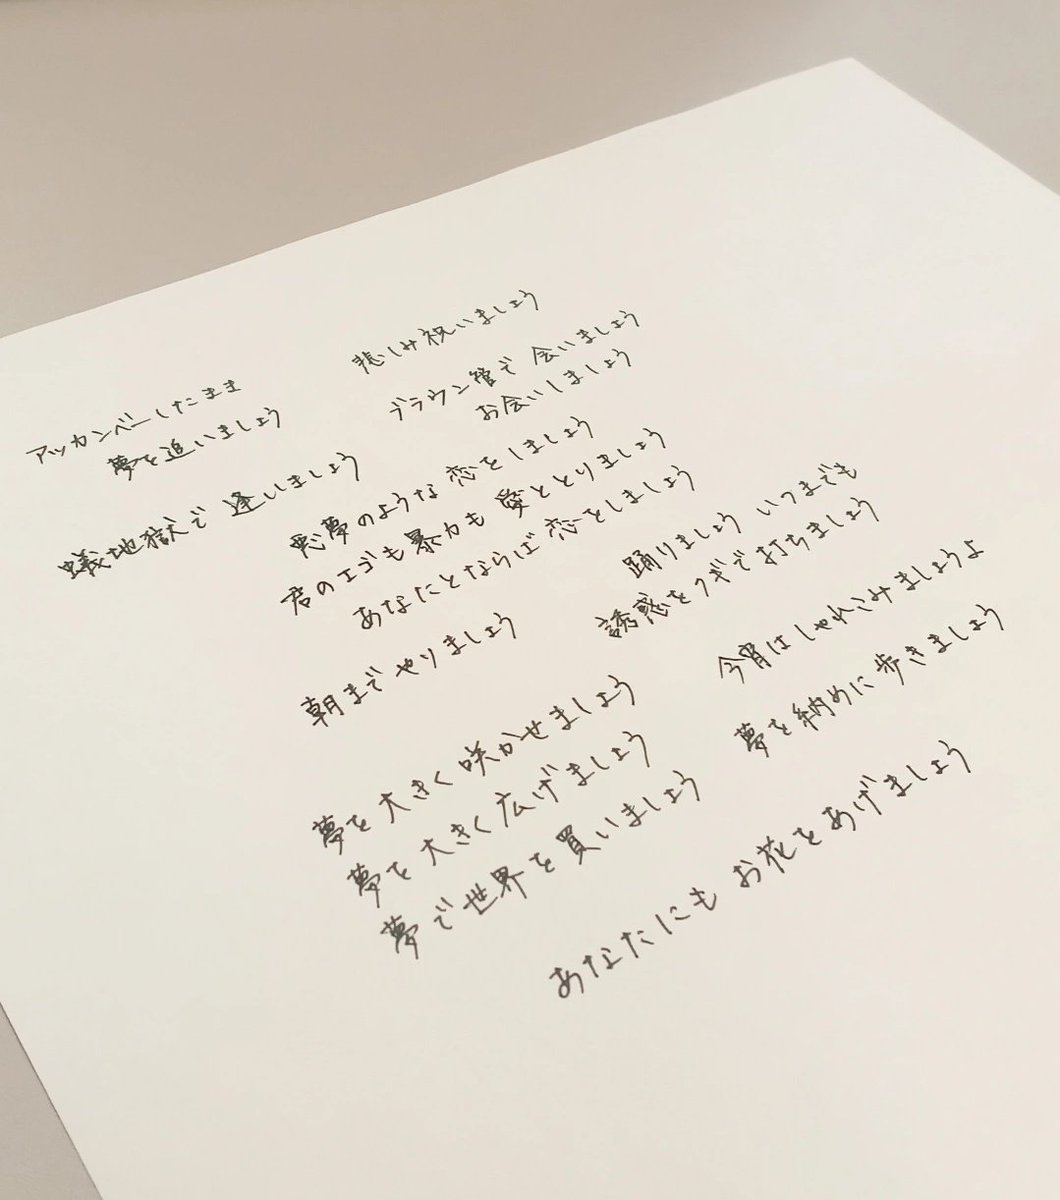 悲しみ祝いましょう
ブラウン管で会いましょう
お会いしましょう
アッカンベーしたまま
夢を追いましょう
蟻地獄で逢いましょう
悪夢のような恋をしましょう
君のエゴも暴力も愛ととりましょう
あなたとならば恋をしましょう
踊りましょういつまでも
誘惑をクギで打ちましょう
朝までやりましょう
今宵はしゃれこみましょうよ
夢を納めに歩きましょう
夢を大きく咲かせましょう
夢を大きく広げましょう
夢で世界を買いましょう
あなたにもお花をあげましょう